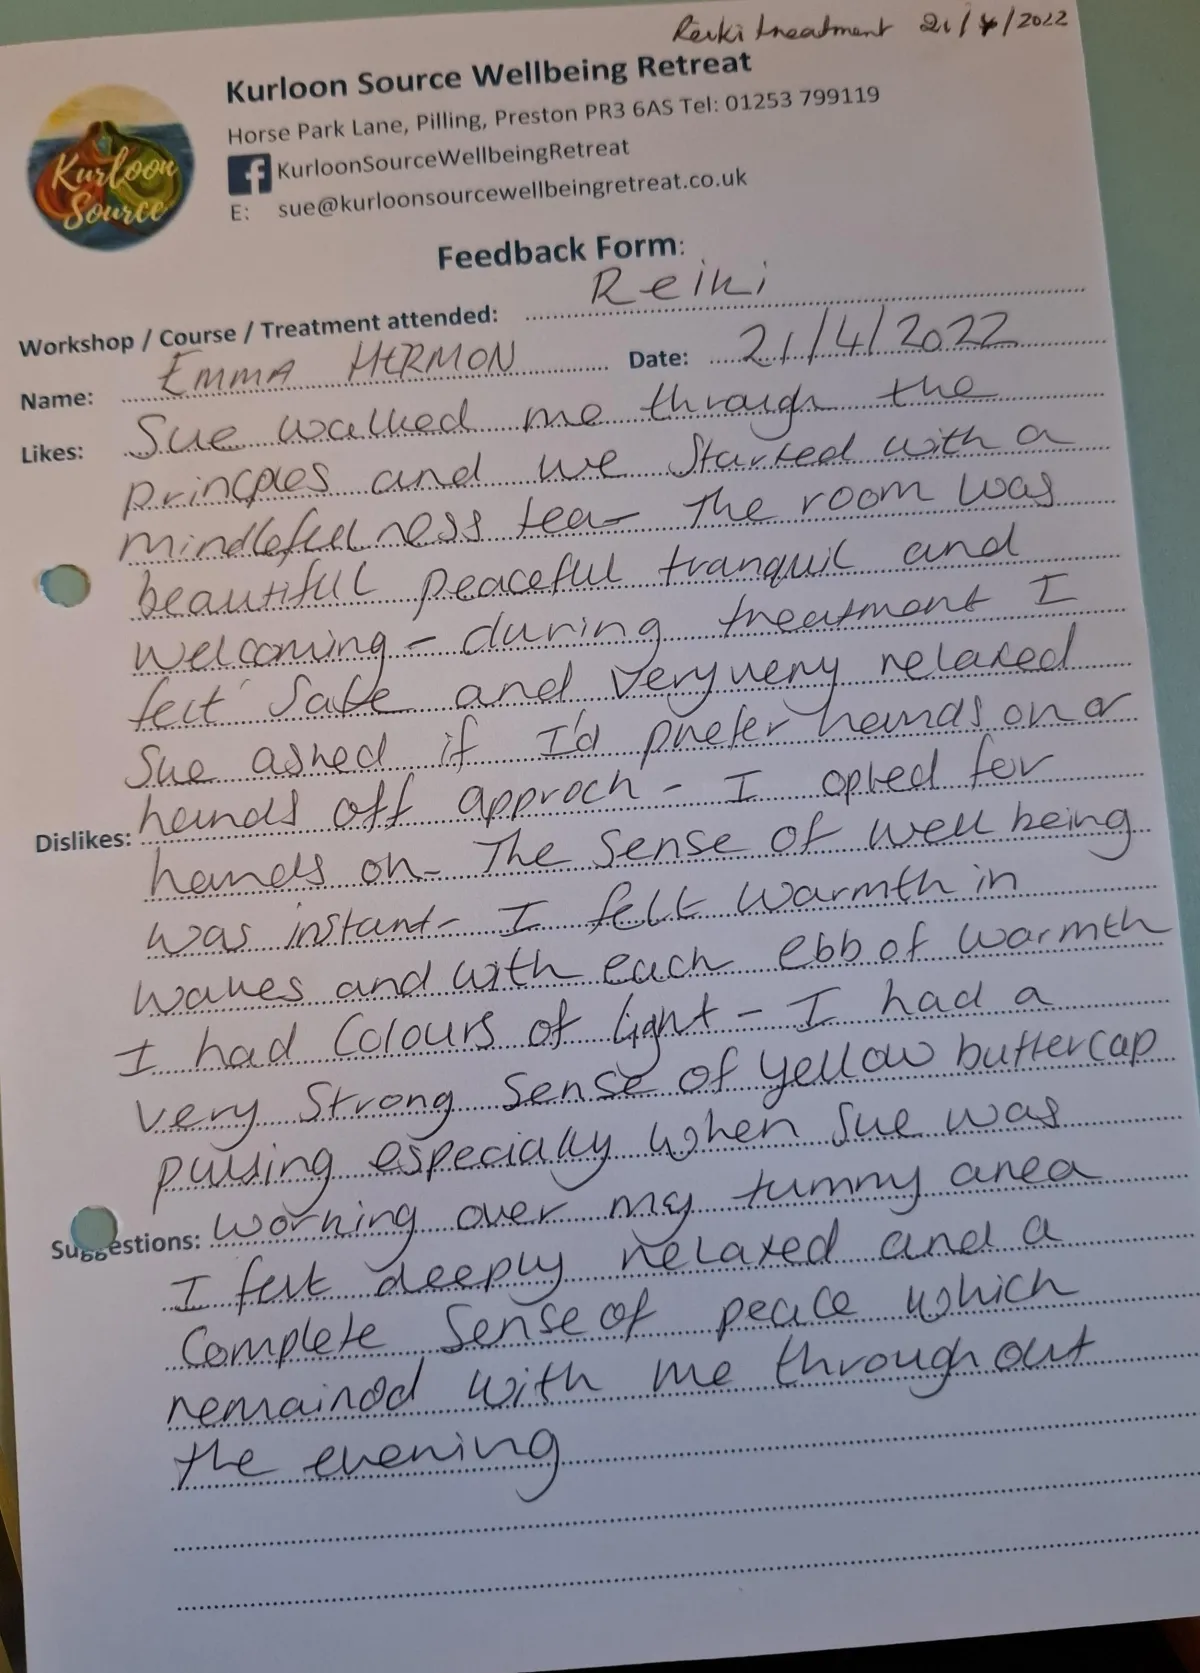 Reiki treatment 21/4/2022
Kurloon Source Wellbeing Retreat
Horse Park Lane, Pilling, Preston PR3 6AS Tel: 01253 799119
KurloonSourceWellbeingRetreat
E: sue@kurloonsourcewellbeingretreat.co.uk
Kurloon
Source
Feedback Form:
Workshop / Course / Treatment attended: Reiki
Name: EMMA HERMON Date: 21/4/2022
Likes: Sue walked me through the
princples and we started with a
mindlefulness tea - The room was
beautifull peaceful tranquil and
welcoming - during treatment I
felt safe and very very relaxed
Sue asked if I'd prefer hands on or
hands off approch - I opted for
Dislikes:
hands on - The sense of well being
was instant - I felt warmth in
waves and with each ebb of warmth
I had Colours of light - I had a
very strong sense of yellow buttercap
pulsing especially when Sue was
Suggestions: working over my tummy area
I felt deeply relaxed and a
Complete sense of peace which
remained with me throughout
the evening